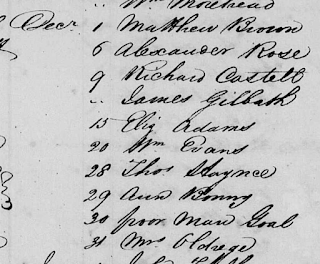 .. Wm Morehead
Decr 1 Matthew Brown
6 Alexander Rose
9 Richard Castell
.. James Gilbath
15 Eliz Adams
20 Wm Evans
28 Thos Haynes
29 Ann Bonny
30 poor Man Goal
31 Mrs Oldrege